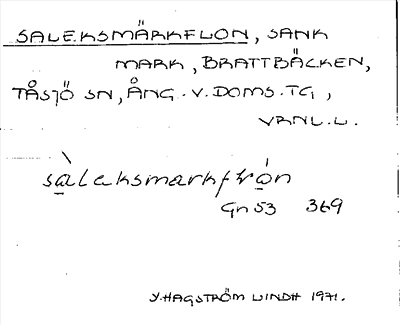 SALEKSMÄRKFLON, SANK
MARK, BRATTBÄCKEN,
TÅSJÖ SN, ÅNG. V. DOMS. TG,
VRNL. L.
sàlaksmarkfrón
Gn 53 369
Y. HAGSTRÖM LINDH 1971.